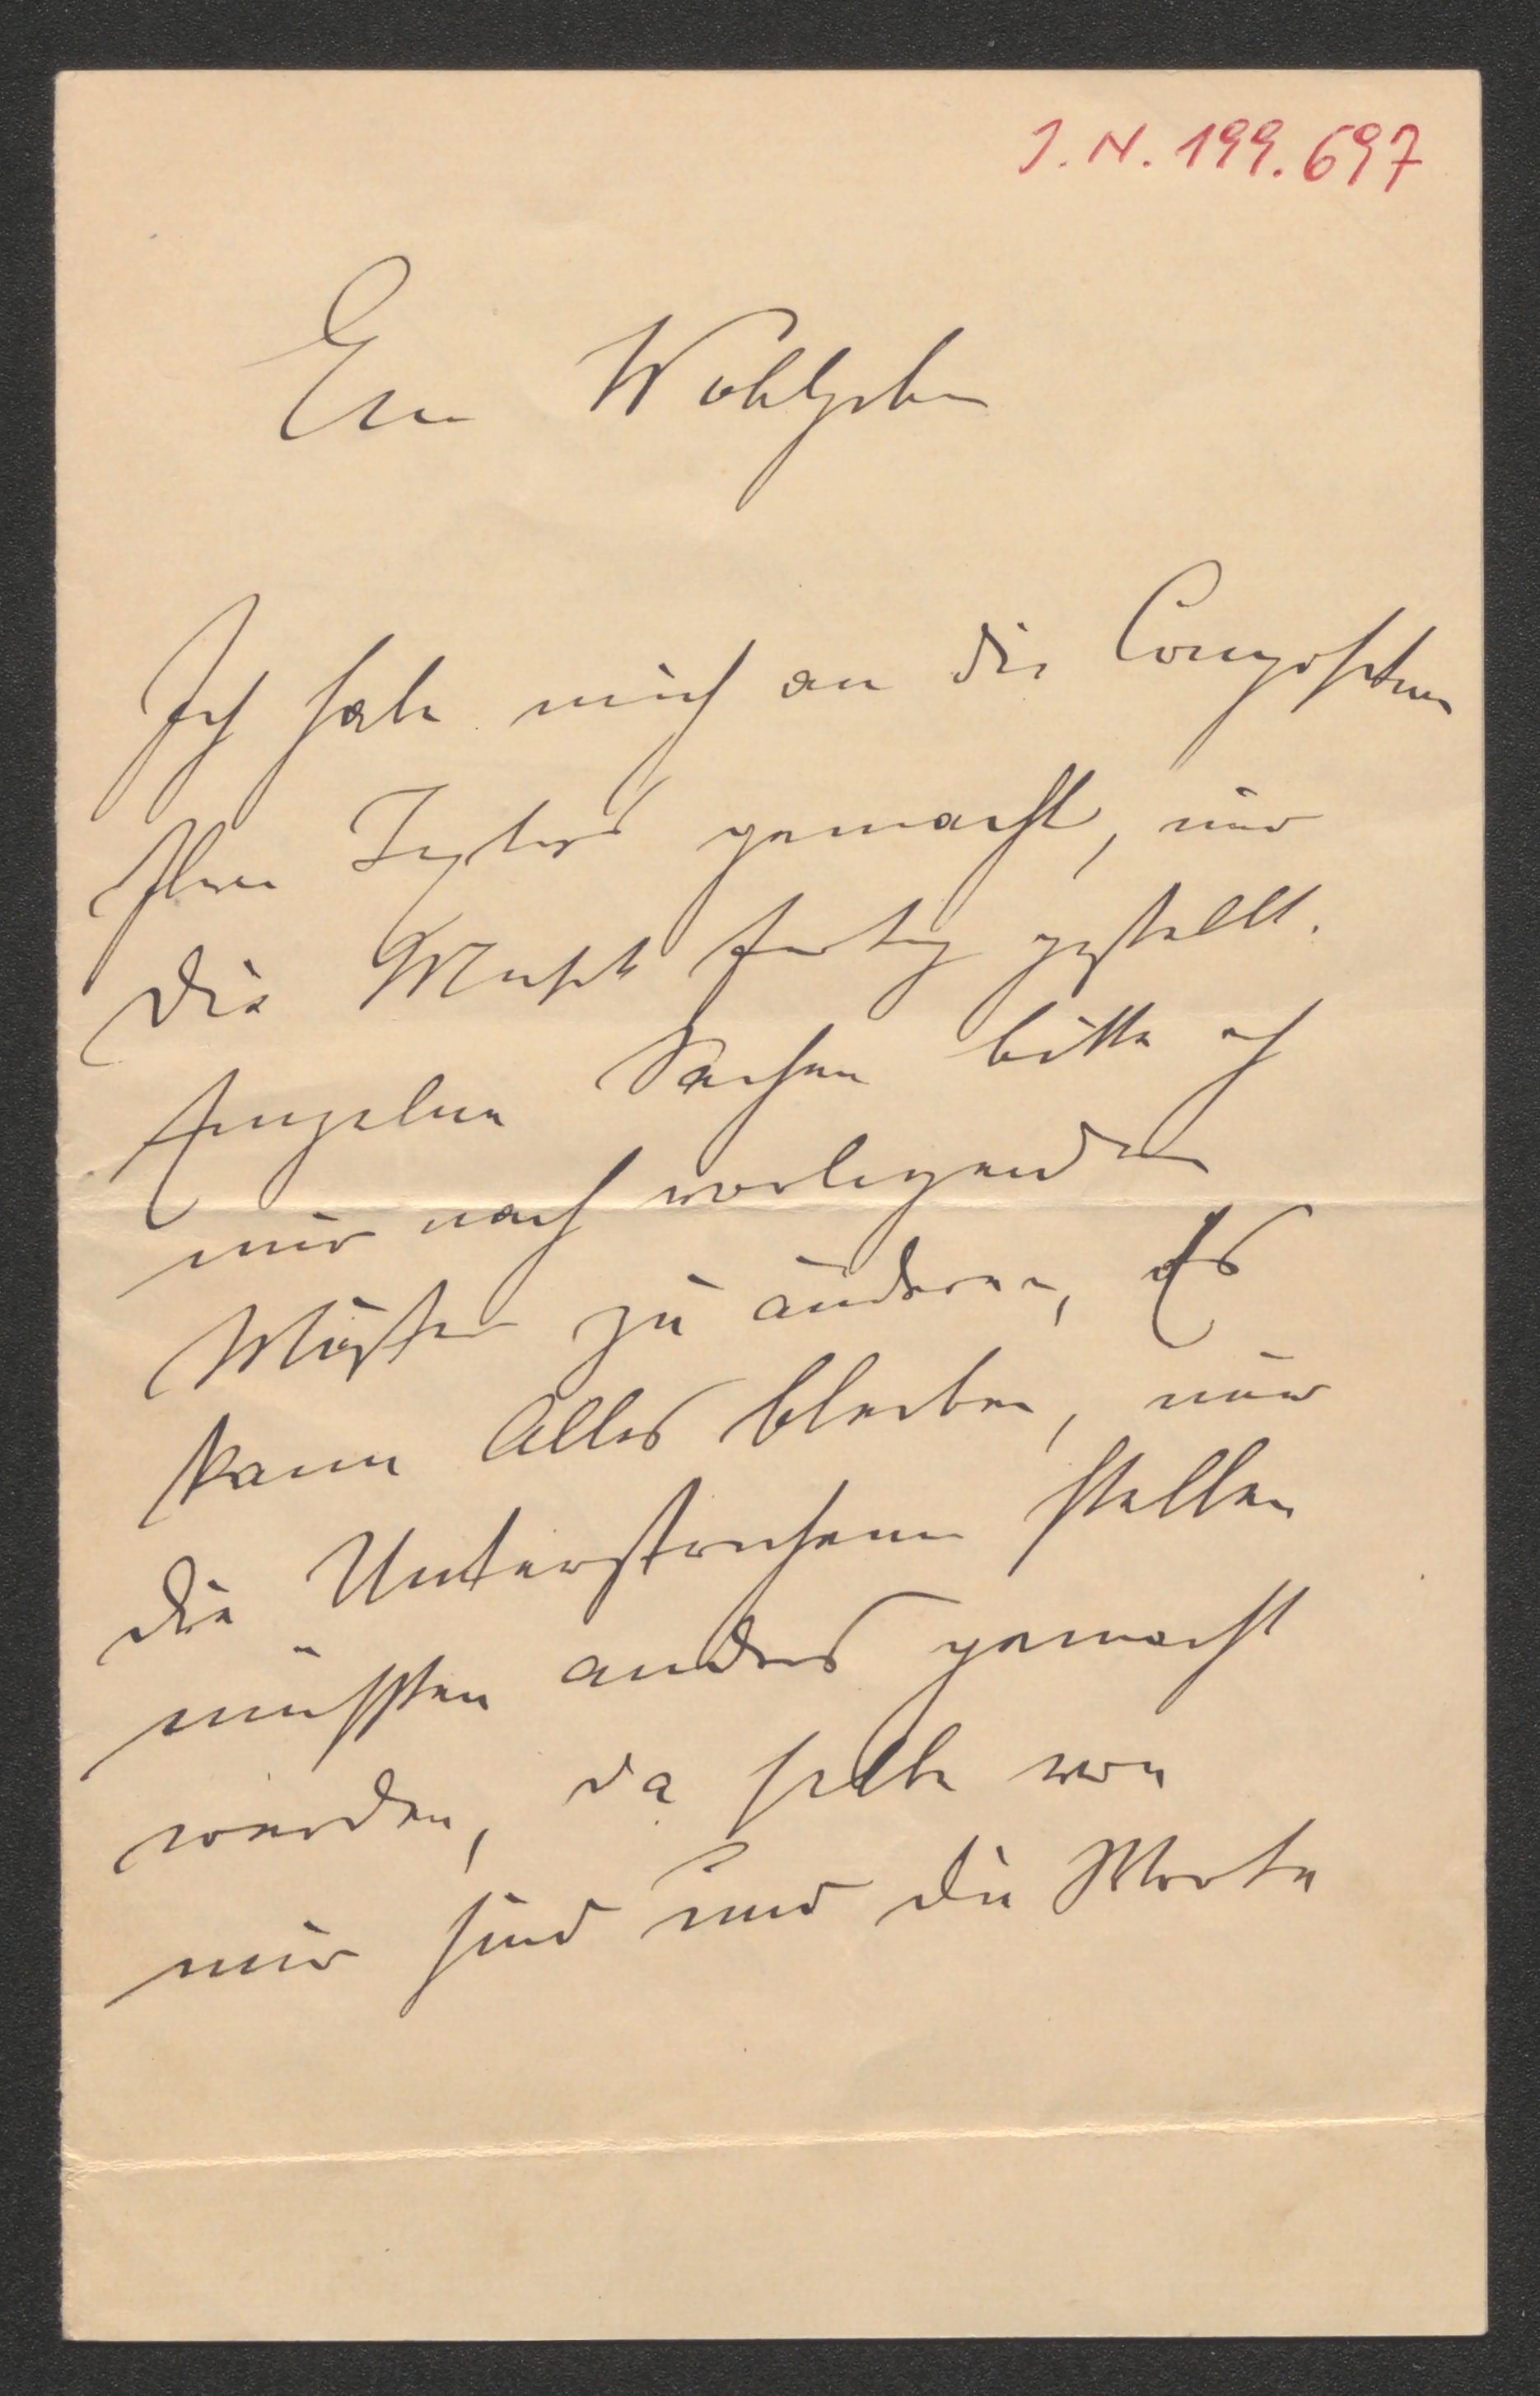 J. N. 199.697
Euer Wohlgeboren
Ich habe mich an die Composition
Ihres Textes gemacht, und
die Musik fertig gestellt.
Einzelne Sachen bitte ich
mir nach vorliegendem
Muster zu ändern, Es
kann Alles bleiben, nur
die Unterstrichenen Stellen
müssten anders gemacht
werden, da selbe von
mir sind und die Worte